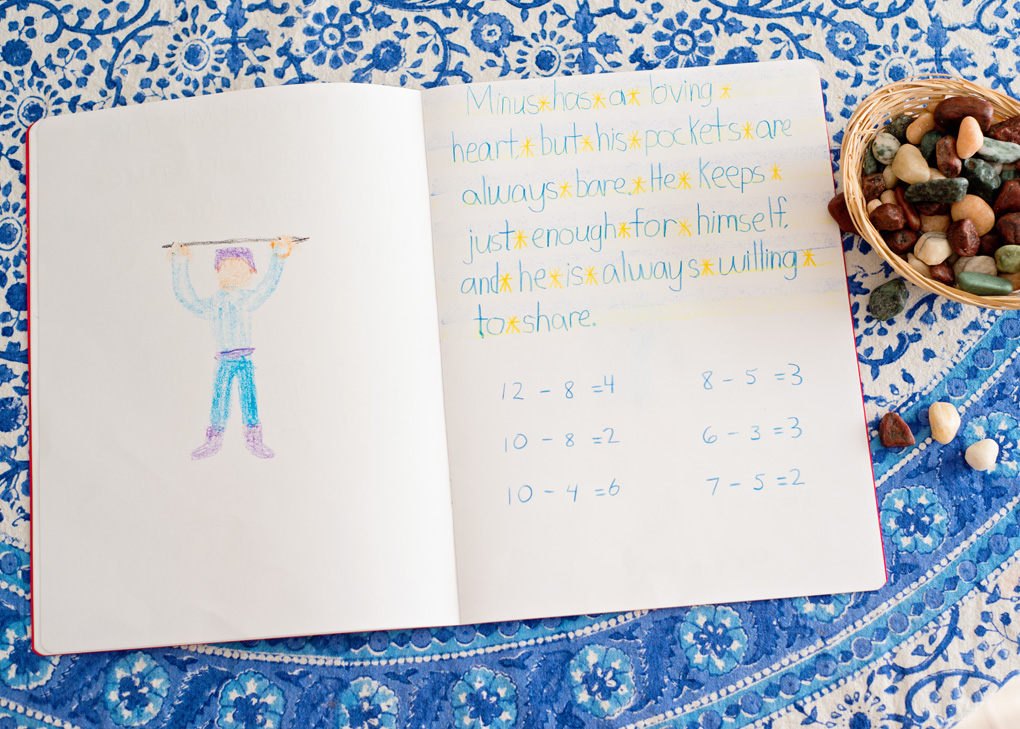 Minus has a loving
heart, but his pockets are
always bare. He keeps
just enough for himself,
and he is always willing
to share.
12 - 8 = 4 8 - 5 = 3
10 - 8 = 2 6 - 3 = 3
10 - 4 = 6 7 - 5 = 2